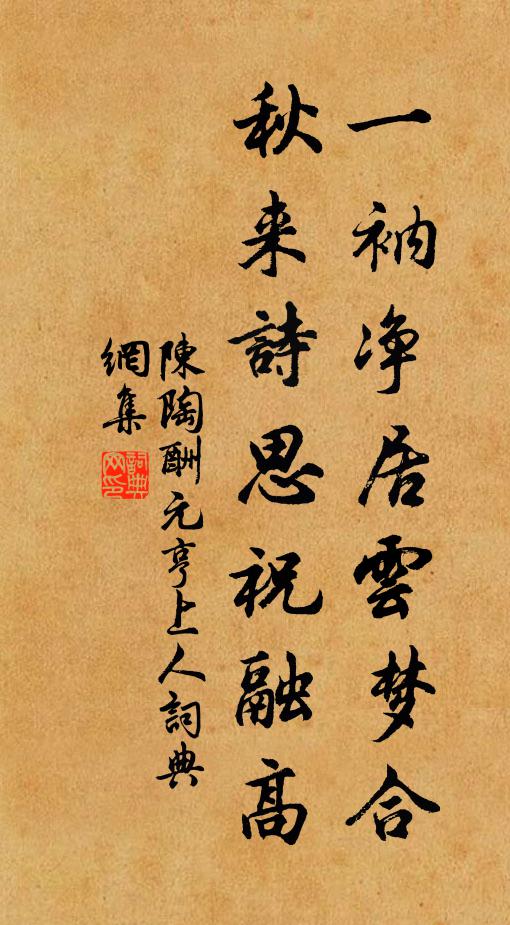 一衲净居雲梦合
秋来詩思祝融高
陳陶酬元亨上人詞典
網集
詞典网印